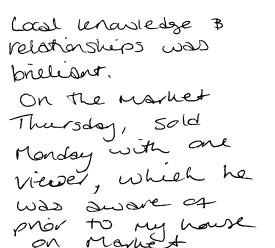 Local knowledge &
relationships was
brilliant.
On the market
Thursday, sold
Monday with one
viewer, which he
was aware of
prior to my house
on market